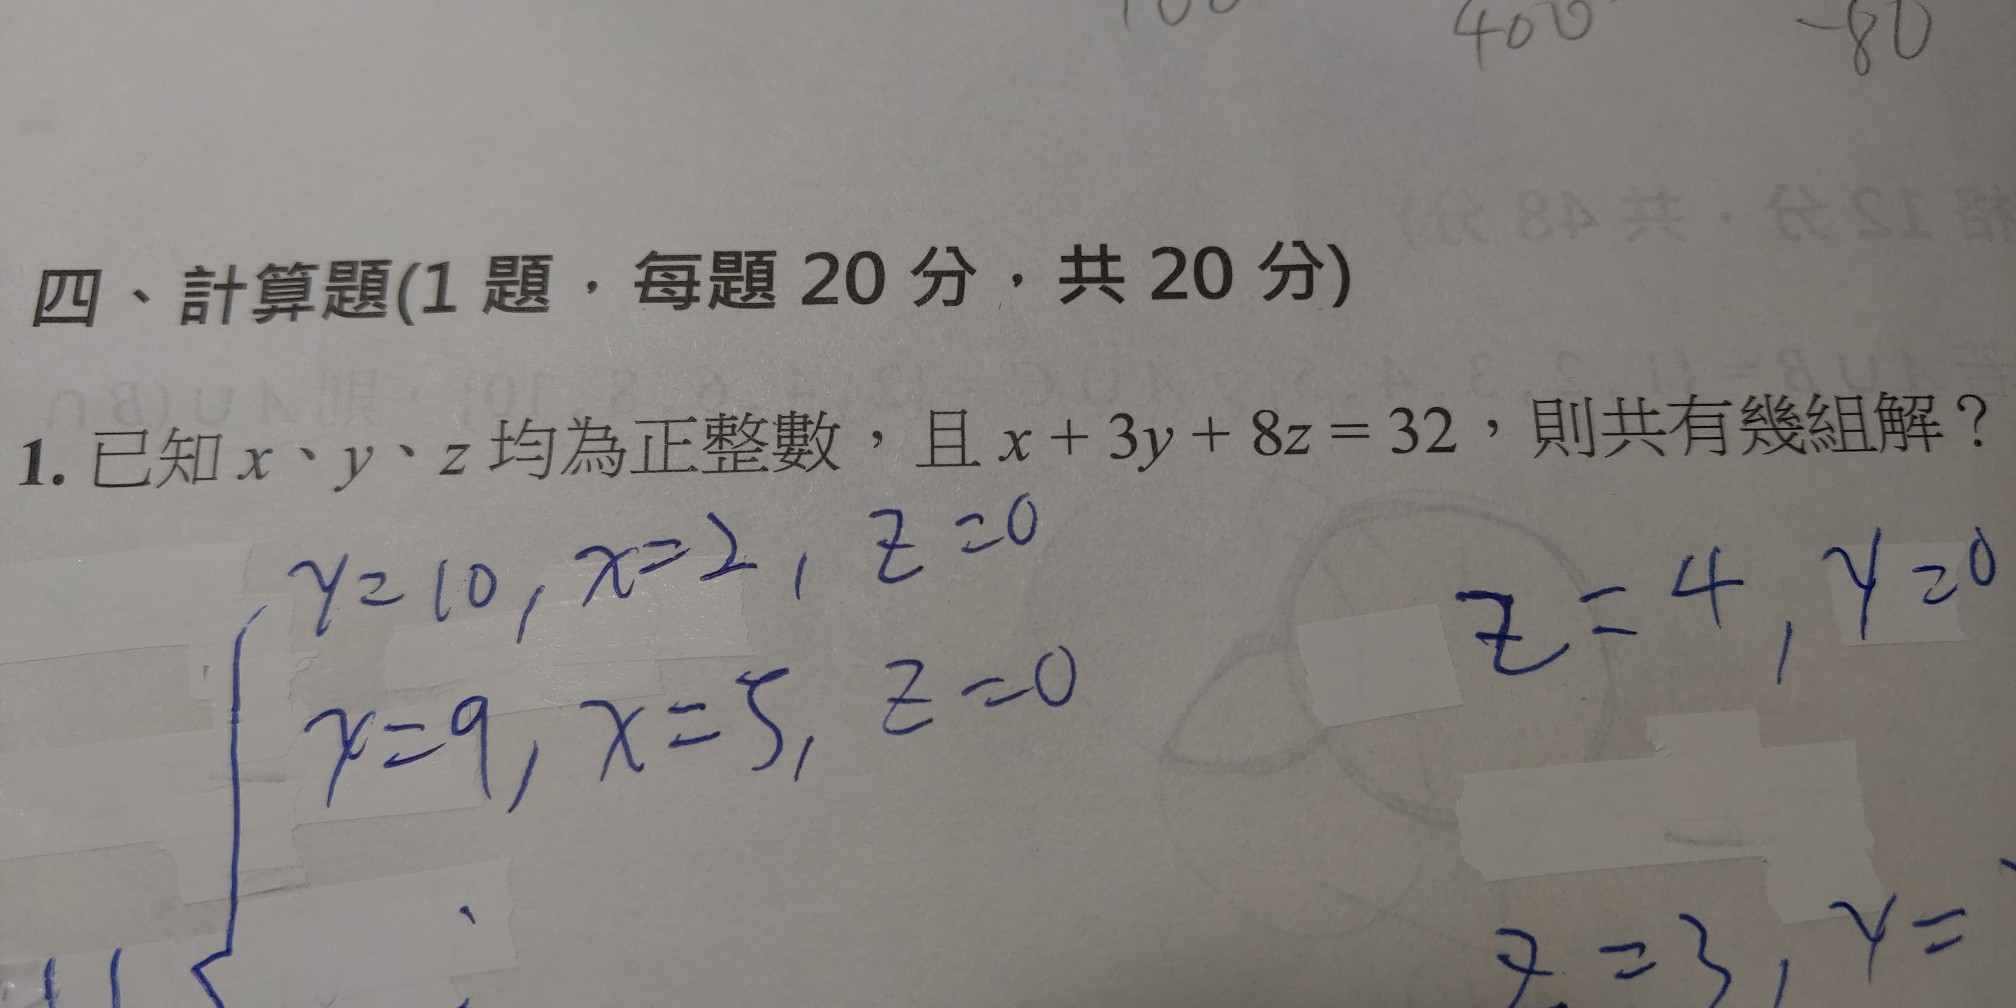 400 -80
四、計算題(1 題，每題 20 分，共 20 分)
1. 已知 x、y、z 均為正整數，且 x + 3y + 8z = 32，則共有幾組解？
y=10, x=2, z=0
x=9, x=5, z=0
z=4, y=0
z=3, y=